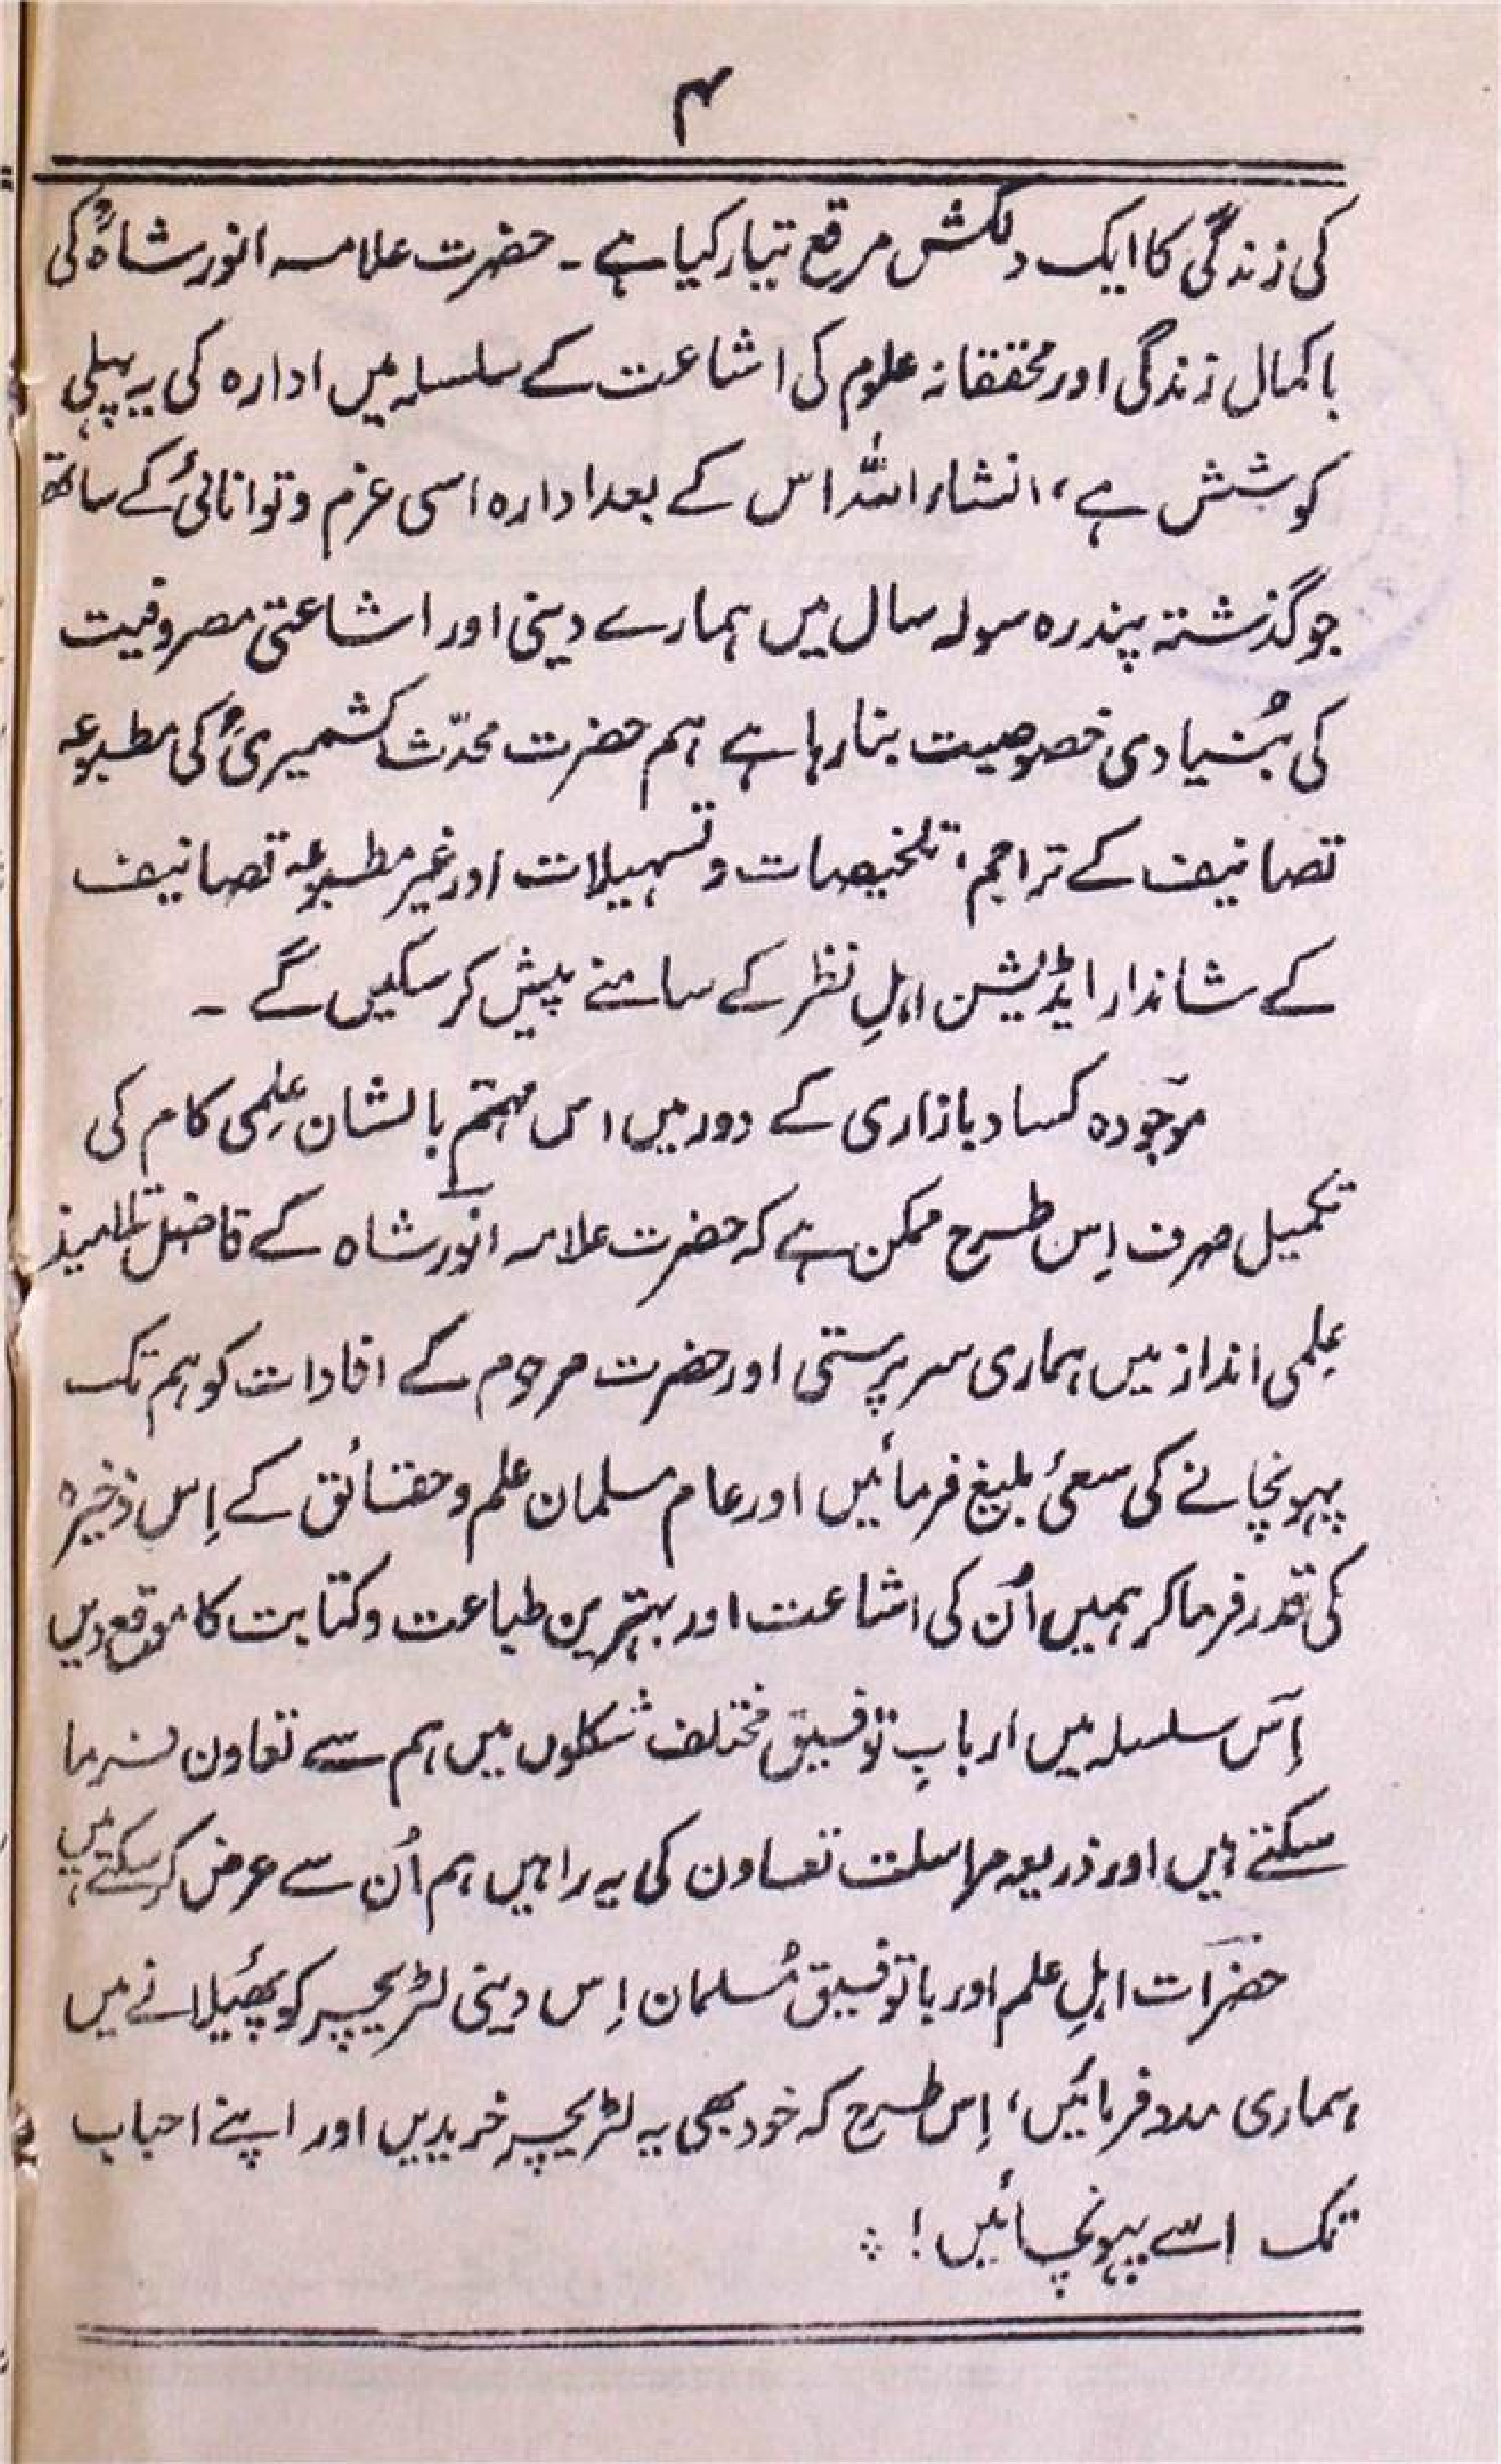 ۴
کی زندگی کا ایک دلکش مرقع تیار کیا ہے ۔ حضرت علامہ انور شاہؒ کی
باکمال زندگی اور محققانہ علوم کی اشاعت کے سلسلہ میں ادارہ کی یہ پہلی
کوشش ہے ، انشاء اللہ اس کے بعد ادارہ اسی عزم و توانائی کے ساتھ
جو گذشتہ پندرہ سولہ سال میں ہمارے دینی اور اشاعتی مصروفیت
کی بُنیادی خصوصیت بنا رہا ہے ہم حضرت محدّث کشمیریؒ کی مطبوعہ
تصانیف کے تراجم ، تلخیصات و تسہیلات اور غیر مطبوعہ تصانیف
کے شاندار ایڈیشن اہلِ نظر کے سامنے پیش کر سکیں گے ۔
موجودہ کساد بازاری کے دور میں اس مہتم بالشان عِلمی کام کی
تکمیل صرف اِس طرح ممکن ہے کہ حضرت علامہ انور شاہ کے فاضل تلامیذ
عِلمی انداز میں ہماری سرپرستی اور حضرت مرحوم کے افادات کو ہم تک
پہونچانے کی سعئ بلیغ فرمائیں اور عام مسلمان علم و حقائق کے اِس ذخیرہ
کی قدر فرما کر ہمیں اُن کی اشاعت اور بہترین طباعت و کتابت کا موقع دیں
اِس سلسلہ میں اربابِ توفیق مختلف شکلوں میں ہم سے تعاون فرما
سکتے ہیں اور ذریعہ مراسلت تعاون کی یہ راہیں ہم اُن سے عرض کر سکتے ہیں
حضرات اہلِ علم اور با توفیق مُسلمان اِس دینی لٹریچر کو پھیلانے میں
ہماری مدد فرمائیں ، اِس طرح کہ خود بھی یہ لٹریچر خریدیں اور اپنے احباب
تک اسے پہونچائیں ! ⁖